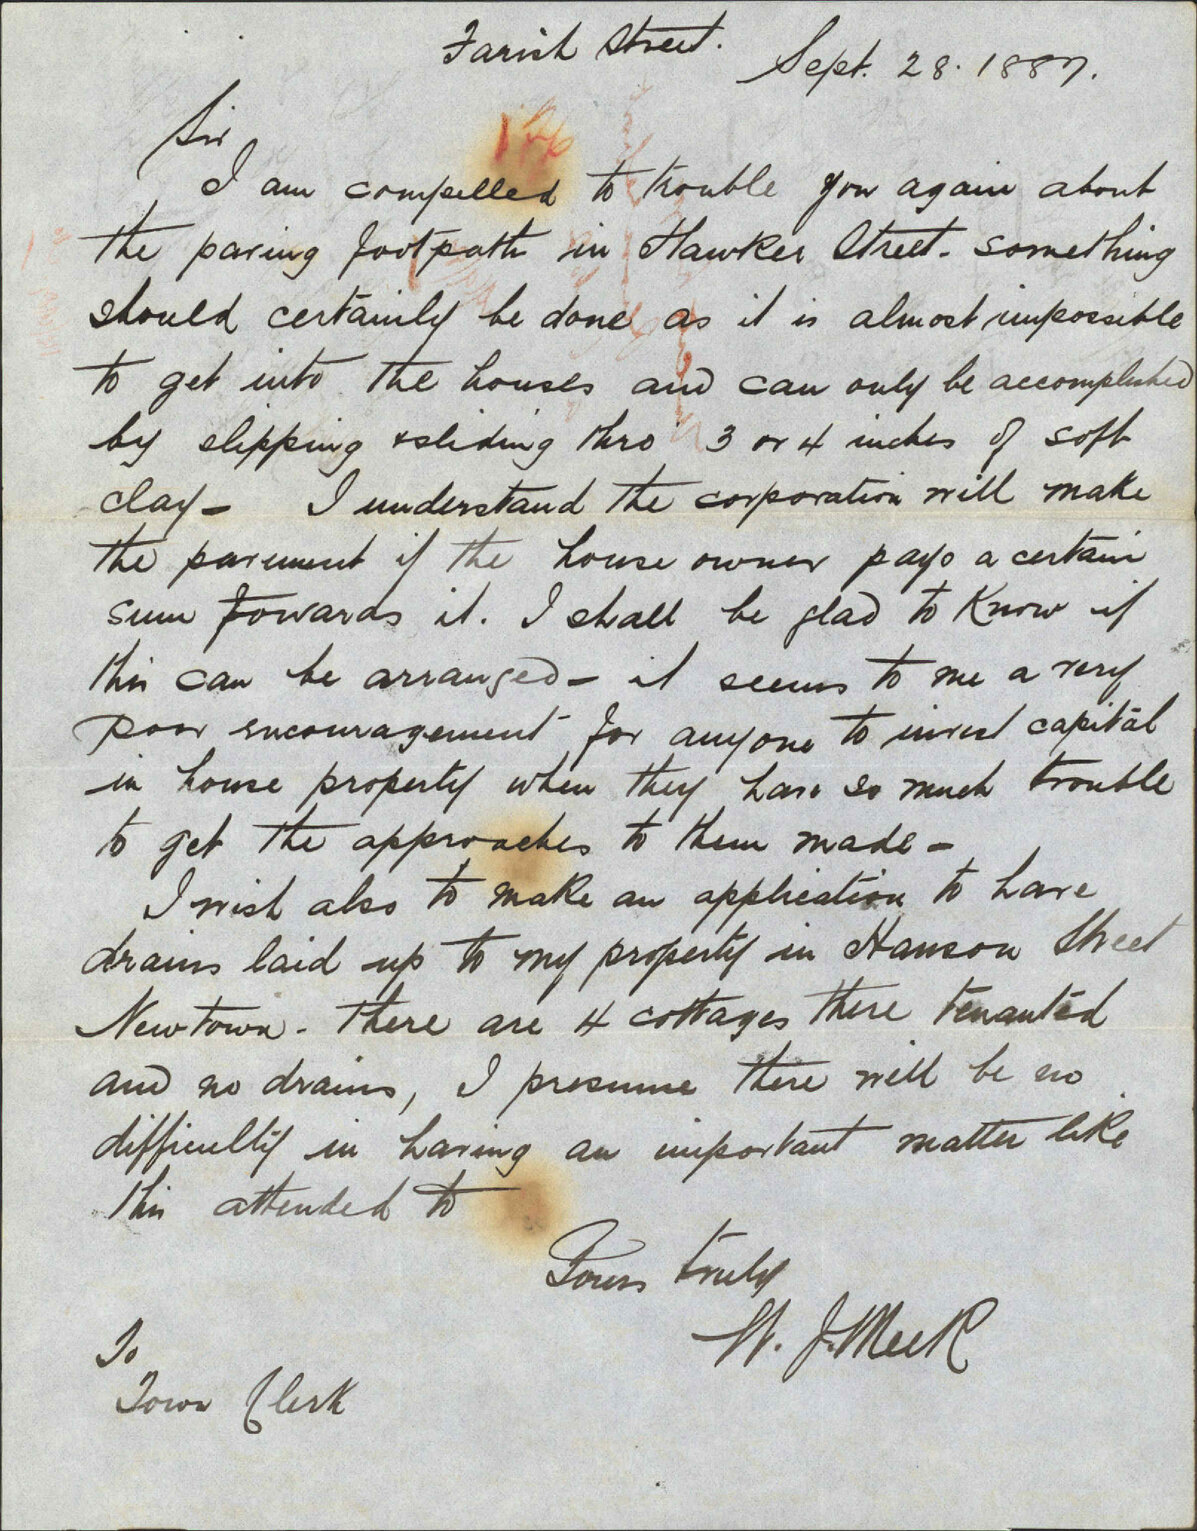 Farish Street.
Sept. 28. 1887.
Sir
I am compelled to trouble you again about
the paving footpath in Hawker Street. something
should certainly be done as it is almost impossible
to get into the houses and can only be accomplished
by slipping & sliding thro' 3 or 4 inches of soft
clay - I understand the corporation will make
the pavement if the house owner pays a certain
sum towards it. I shall be glad to know if
this can be arranged - it seems to me a very
poor encouragement for anyone to invest capital
in house property when they have so much trouble
to get the approaches to them made -
I wish also to make an application to have
drains laid up to my property in Hanson Street
Newtown. There are 4 cottages there tenanted
and no drains, I presume there will be no
difficulty in having an important matter like
this attended to
Yours truly
W. J. Meek
To
Town Clerk